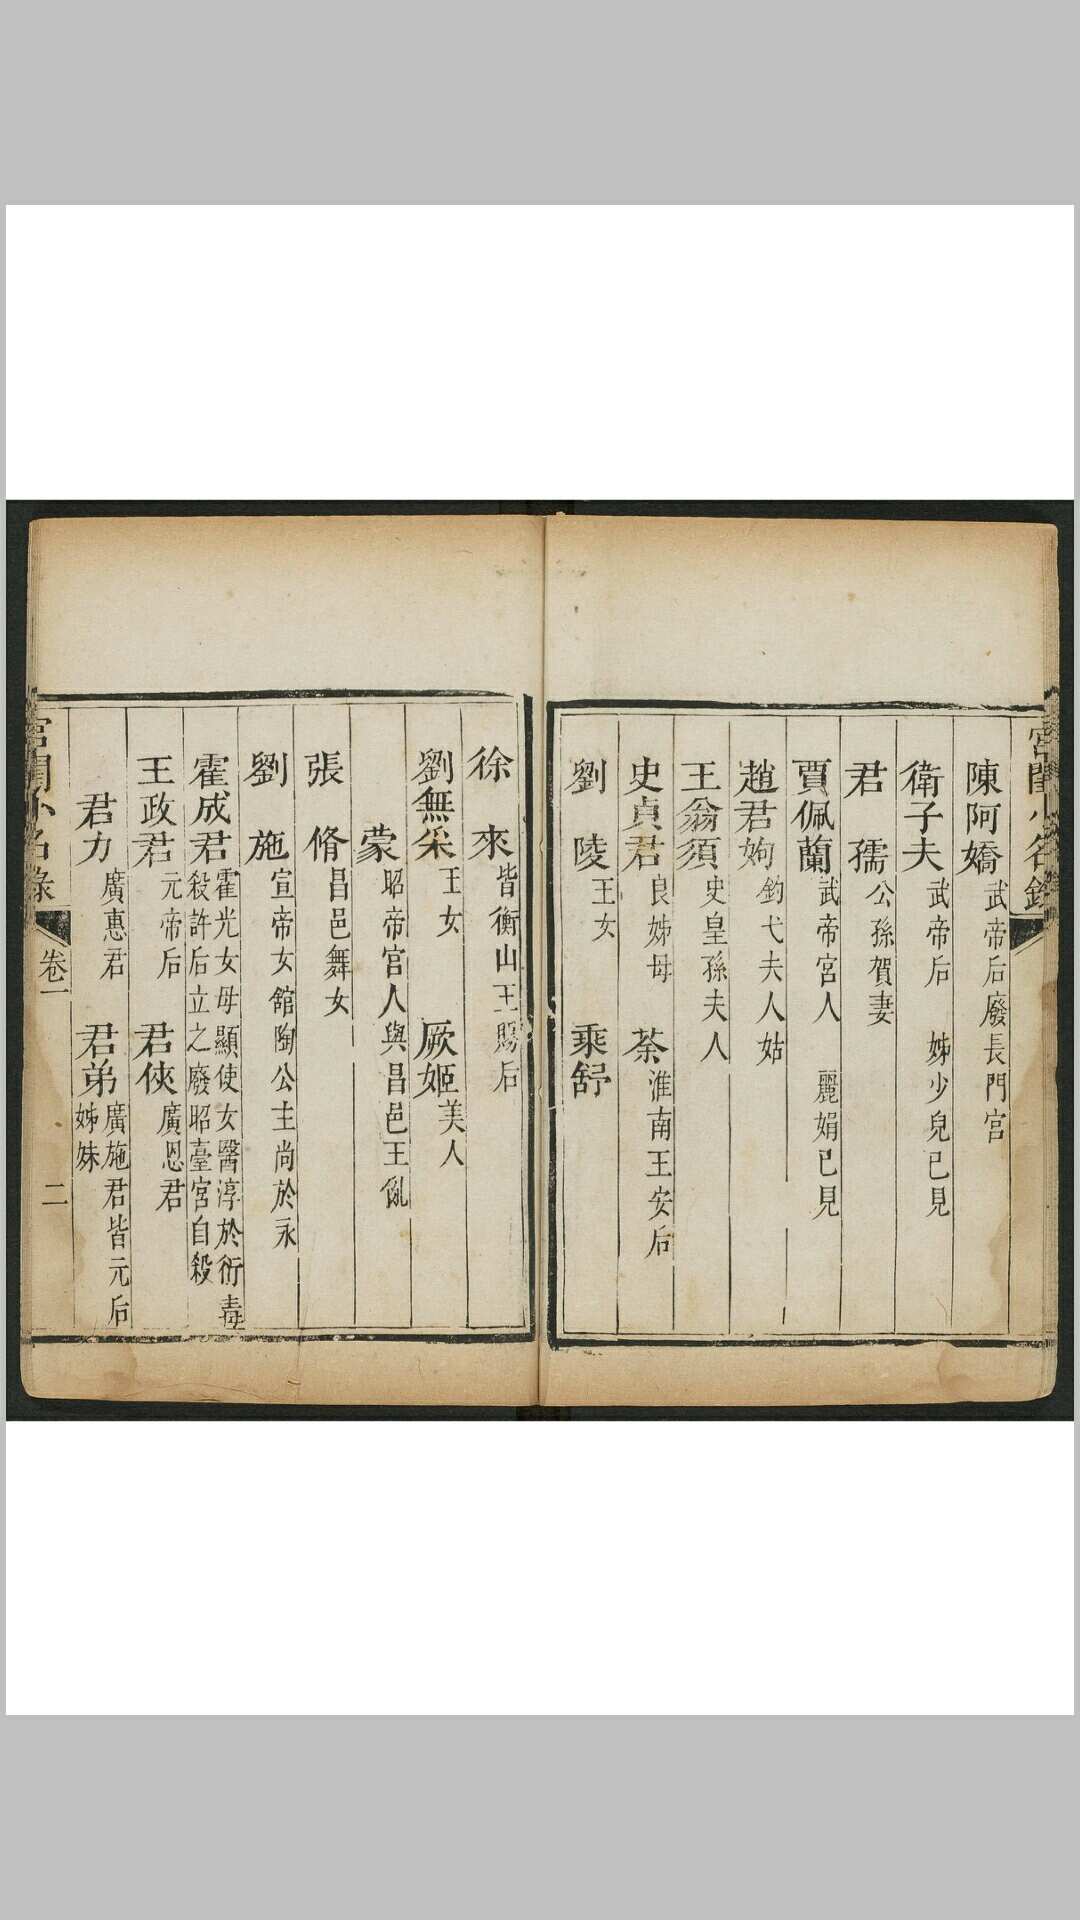 宮閨小名錄
陳阿嬌 武帝后廢長門宮
衛子夫 武帝后 姊少兒已見
君 孺 公孫賀妻
賈佩蘭 武帝宮人 麗娟已見
趙君姁 鈎弋夫人姑
王翁須 史皇孫夫人
史貞君 良娣母 荼 淮南王安后
劉 陵 王女 乘舒
徐 來 皆衡山王賜后
劉無采 王女 厥姬 美人
蒙 昭帝宮人與昌邑王亂
張 脩 昌邑舞女
劉 施 宣帝女館陶公主尚於永
霍成君 霍光女母顯使女醫淳於衍毒殺許后立之廢昭臺宮自殺
王政君 元帝后 君俠 廣恩君
君力 廣惠君 君弟 廣施君皆元后姊妹
宮閨小名錄 卷一 二